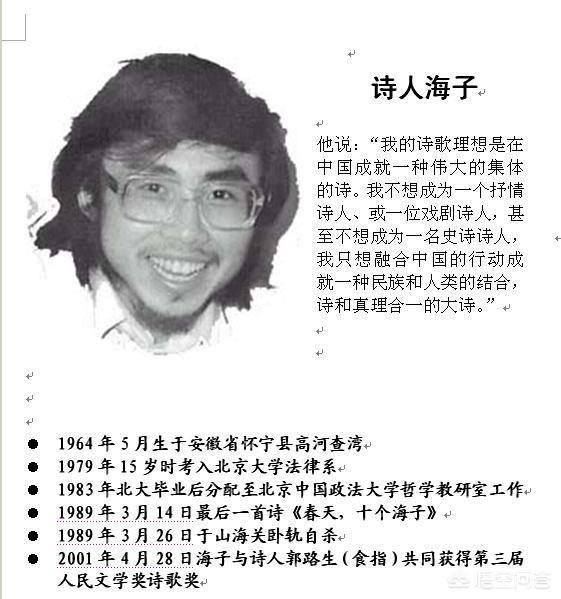 诗人海子
他说：“我的诗歌理想是在
中国成就一种伟大的集体
的诗。我不想成为一个抒情
诗人、或一位戏剧诗人，甚
至不想成为一名史诗诗人，
我只想融合中国的行动成
就一种民族和人类的结合，
诗和真理合一的大诗。”
● 1964 年 5 月生于安徽省怀宁县高河查湾
● 1979 年 15 岁时考入北京大学法律系
● 1983 年北大毕业后分配至北京中国政法大学哲学教研室工作
● 1989 年 3 月 14 日最后一首诗《春天，十个海子》
● 1989 年 3 月 26 日于山海关卧轨自杀
● 2001 年 4 月 28 日海子与诗人郭路生(食指)共同获得第三届
人民文学奖诗歌奖
悟空问答